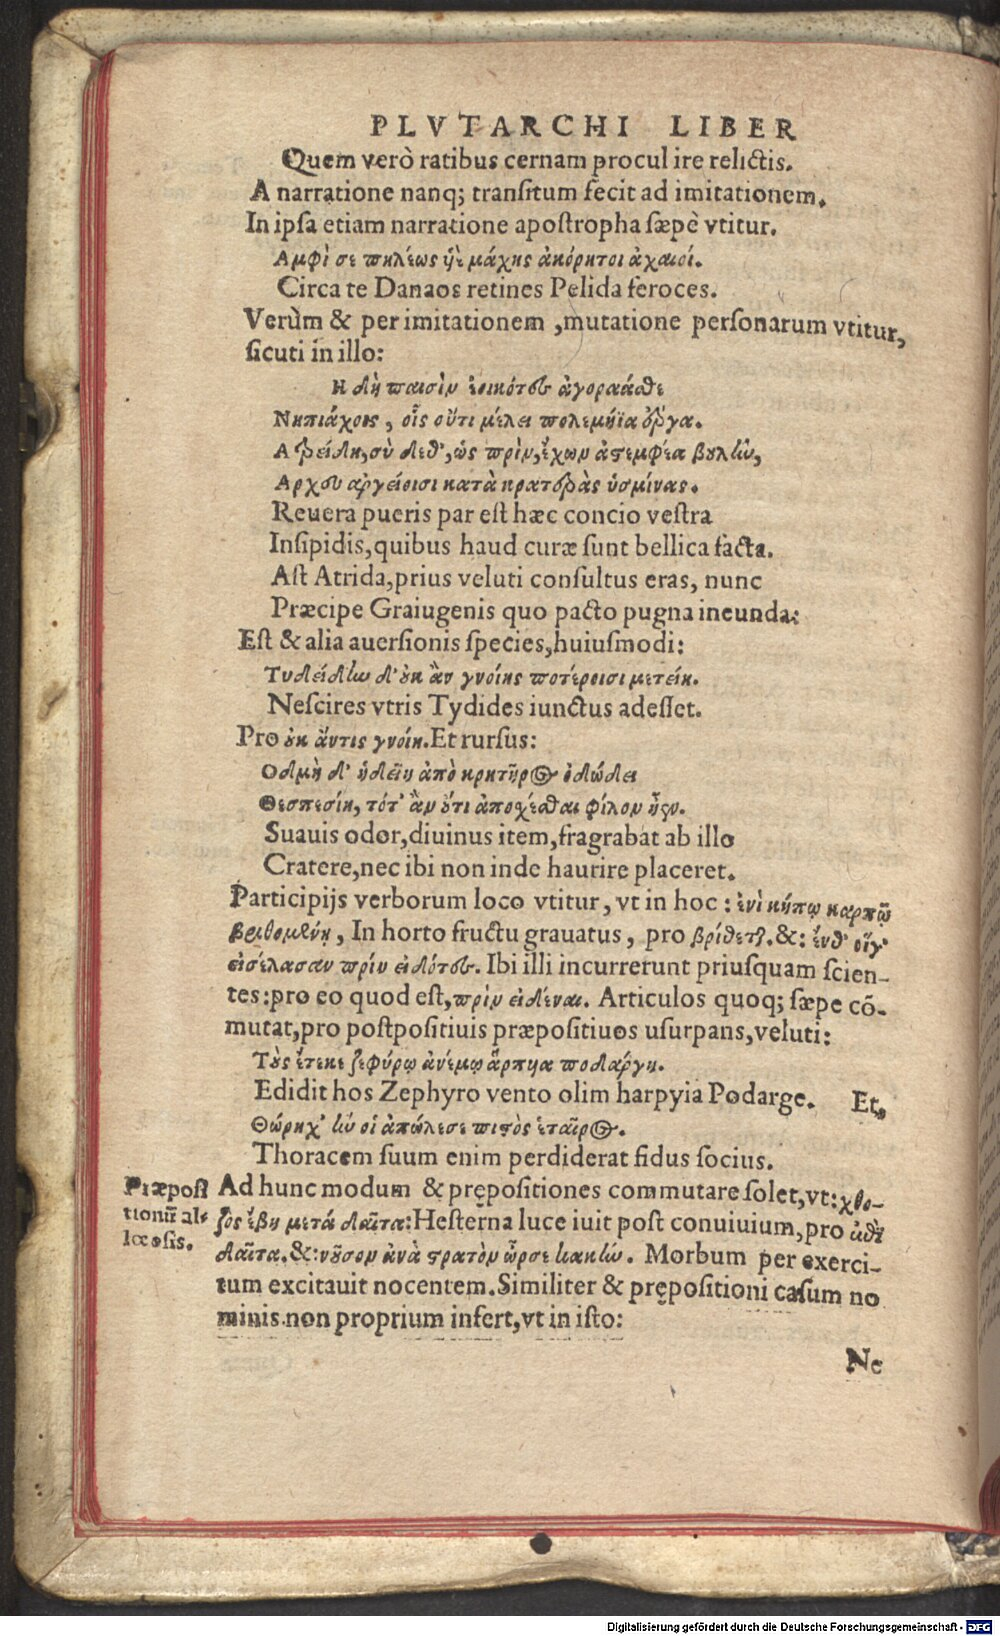 PLVTARCHI LIBER
Quem verò ratibus cernam procul ire relictis.
A narratione nanq; transitum fecit ad imitationem.
In ipsa etiam narratione apostropha sæpè vtitur.
Αμφὶ σε πηλέως ἠὲ μάχης ἀκόρητοι ἀχαιοί.
Circa te Danaos retines Pelida feroces.
Verùm & per imitationem, mutatione personarum vtitur,
sicuti in illo:
Η δὴ παισὶν ἐοικότες ἀγοράαθε
Νηπιάχοις, οἷς οὔτι μέλει πολεμήϊα ἔργα.
Ατρείδη, σὺ δεθ', ὡς πρὶν, ἔχων ἀστεμφέα βουλὴν,
Αρχου ἀργείοισι κατὰ κρατερὰς ὑσμίνας.
Reuera pueris par est hæc concio vestra
Insipidis, quibus haud curæ sunt bellica facta.
Ast Atrida, prius veluti consultus eras, nunc
Præcipe Graiugenis quo pacto pugna ineunda:
Est & alia auersionis species, huiusmodi:
Τυδείδην δ' οὐκ ἂν γνοίης ποτέροισι μετείη.
Nescires vtris Tydides iunctus adesset.
Pro οὐκ ἄντις γνοίη. Et rursus:
Οδμὴ δ' ἡδεῖη ἀπὸ κρητῆρος ὀδώδει
Θεσπεσίη, τότ' ἂν οὔτι ἀποχέσθαι φίλον ἦεν.
Suauis odor, diuinus item, fragrabat ab illo
Cratere, nec ibi non inde haurire placeret.
Participijs verborum loco vtitur, vt in hoc: ἐνὶ κήπῳ καρπῷ
βριθομένη, In horto fructu grauatus, pro βρίθεται. &: ἔνθ' οἵγ'
εἰσέλασαν πρίν εἰδότες. Ibi illi incurrerunt priusquam scien-
tes: pro eo quod est, πρὶν εἰδέναι. Articulos quoq; sæpe cō-
mutat, pro postpositiuis præpositiuos usurpans, veluti:
Τοὺς ἔτεκε ζεφύρῳ ἀνέμῳ ἅρπυια ποδάργη.
Edidit hos Zephyro vento olim harpyia Podarge. Et,
Θώρηχ' ἣν οἱ ἀπώλεσε πιστὸς ἑταῖρος.
Thoracem suum enim perdiderat fidus socius.
Præposi
tionū al-
lœosis.
Ad hunc modum & prępositiones commutare solet, vt: χθο-
ζος ἔβη μετά δαῖτα: Hesterna luce iuit post conuiuium, pro ἐπὶ
δαῖτα. &: νοῦσον ἀνὰ στρατὸν ὦρσε κακὴν. Morbum per exerci-
tum excitauit nocentem. Similiter & prępositioni casum no
minis non proprium infert, vt in isto:
Ne
Digitalisierung gefördert durch die Deutsche Forschungsgemeinschaft - DFG